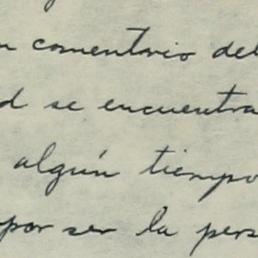 n comentario del
d se encuentra
algún tiempo
por ser la pers